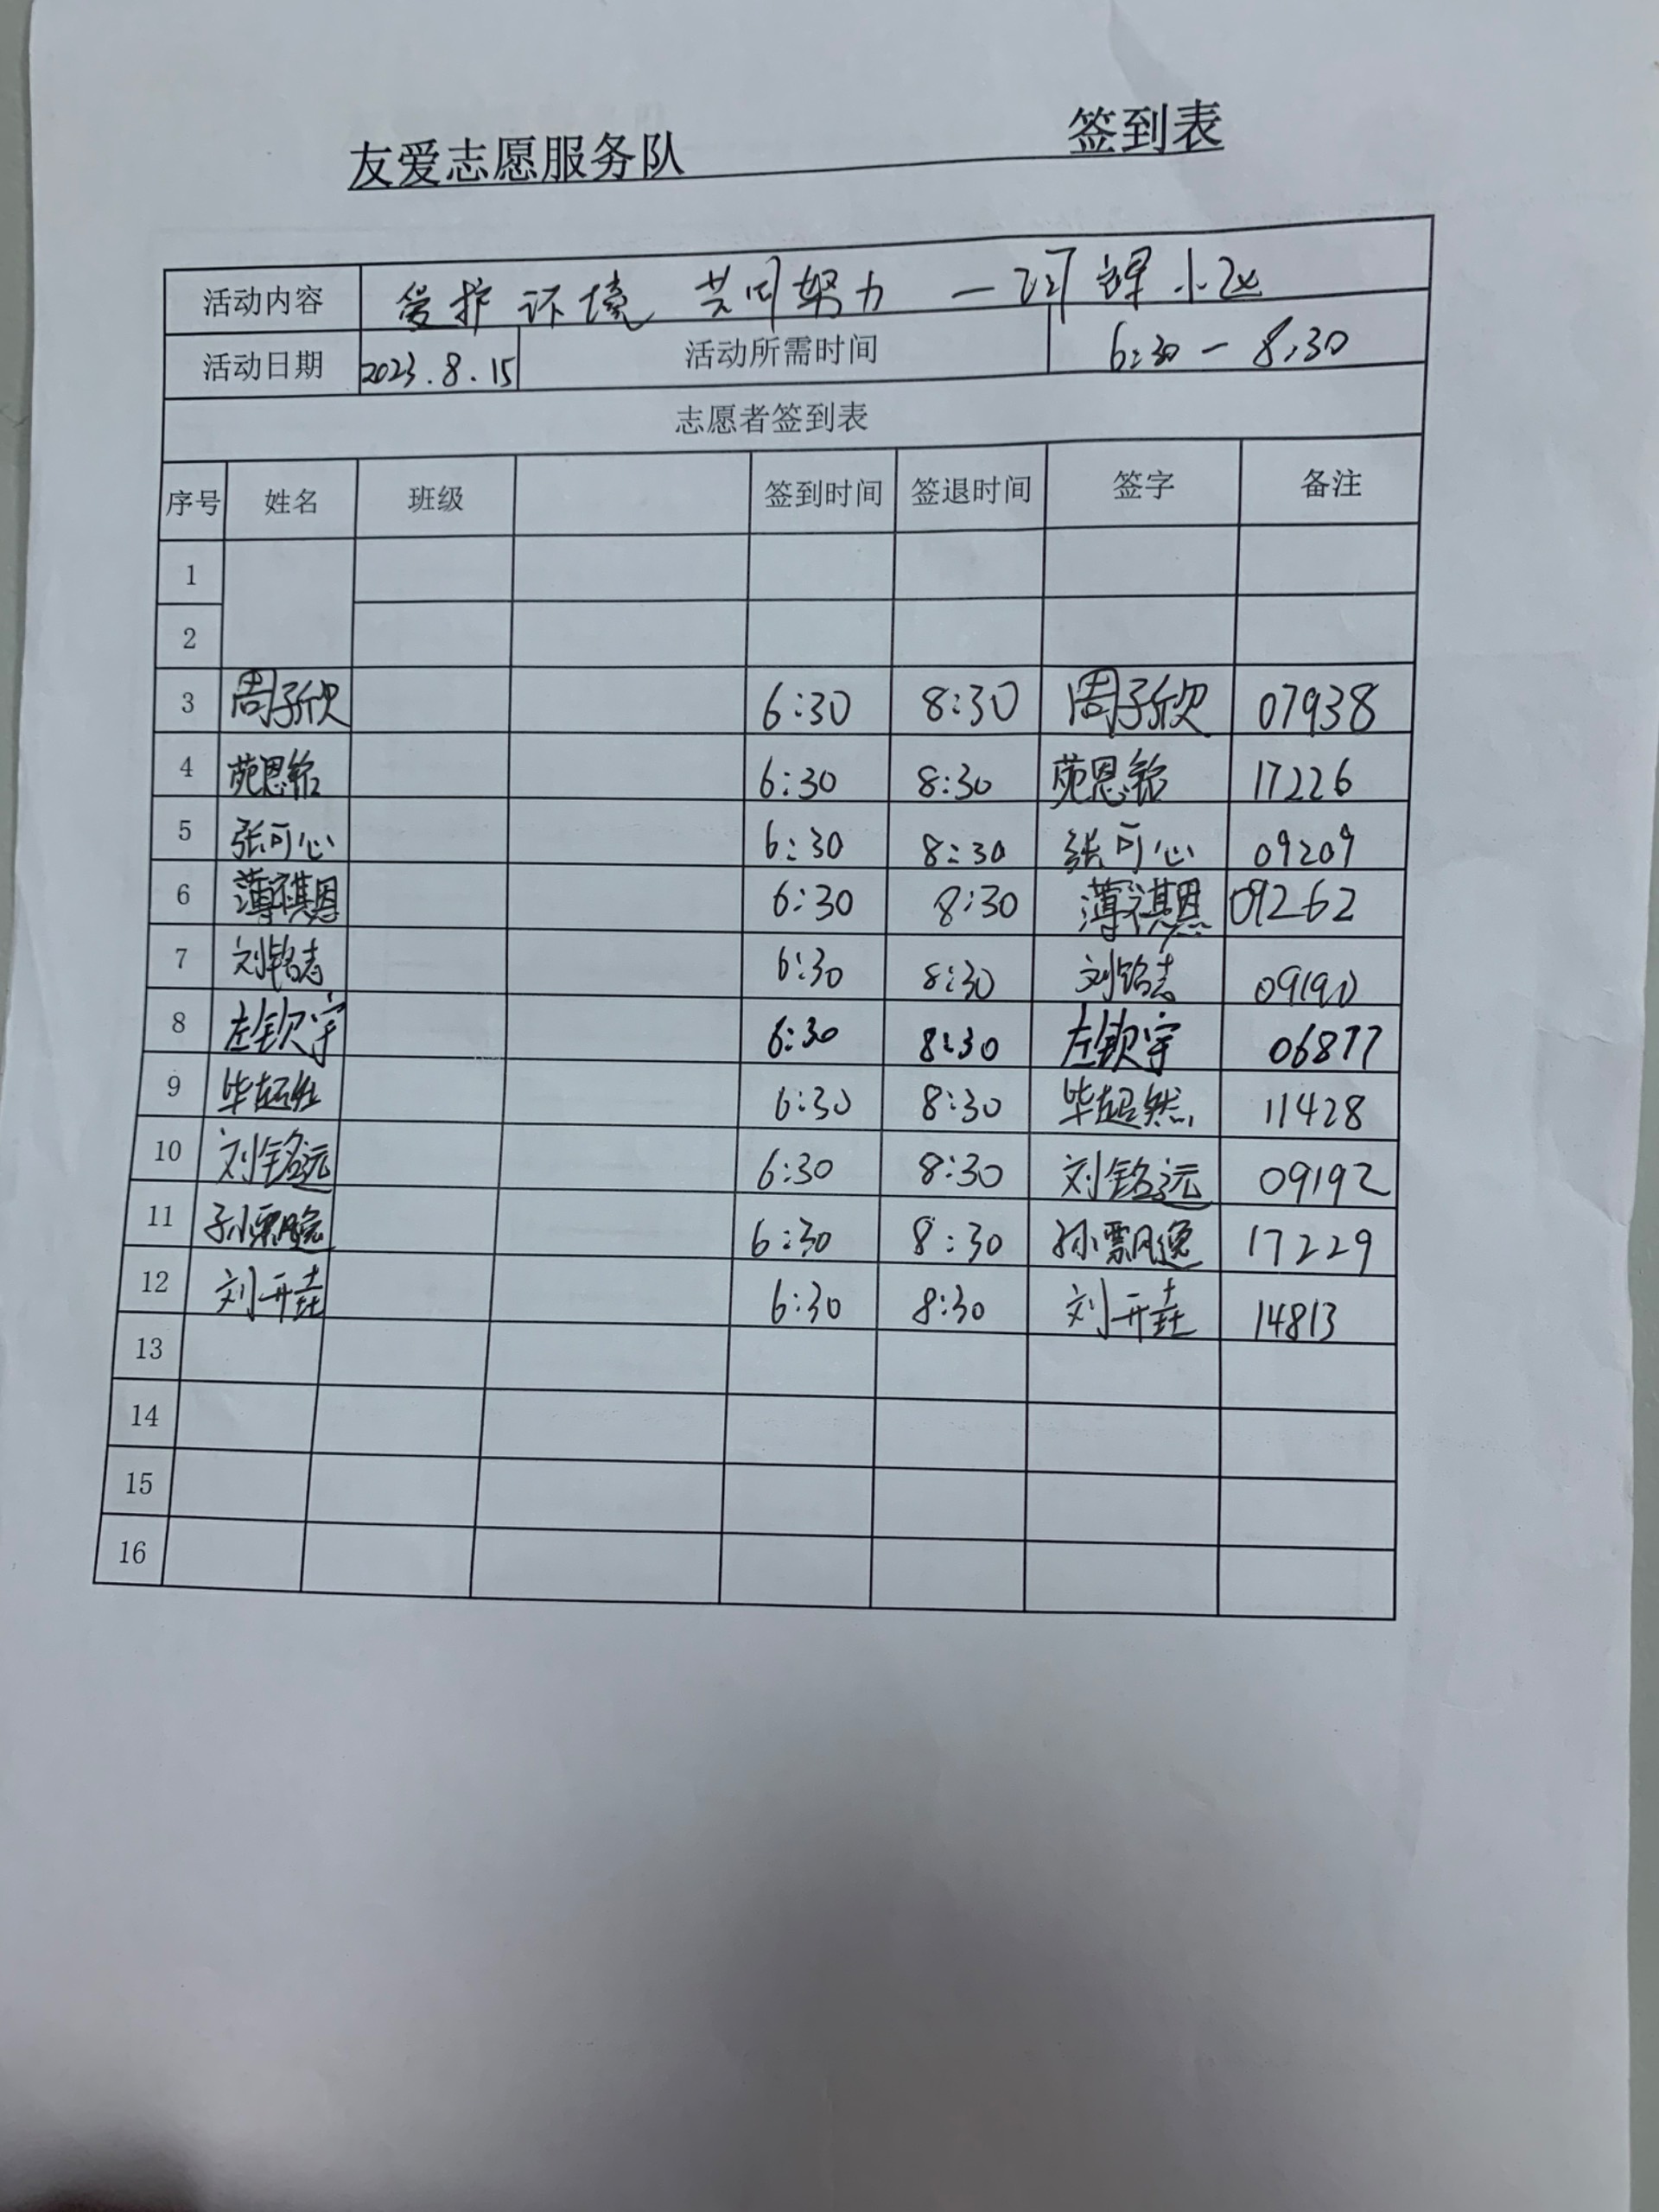 友爱志愿服务队 签到表
活动内容 爱护环境 共同努力 一河 小区
活动日期 2023.8.15 活动所需时间 6:30-8:30
志愿者签到表
序号 姓名 班级 签到时间 签退时间 签字 备注
1
2
3 周子欣 6:30 8:30 周子欣 07938
4 苑恩铭 6:30 8:30 苑恩铭 17226
5 张可心 6:30 8:30 张可心 09209
6 薄祺恩 6:30 8:30 薄祺恩 09262
7 刘铭志 6:30 8:30 刘铭志 09190
8 左钦宇 6:30 8:30 左钦宇 06877
9 毕超然 6:30 8:30 毕超然 11428
10 刘铭远 6:30 8:30 刘铭远 09192
11 孙飘逸 6:30 8:30 孙飘逸 17229
12 刘开垚 6:30 8:30 刘开垚 14813
13
14
15
16